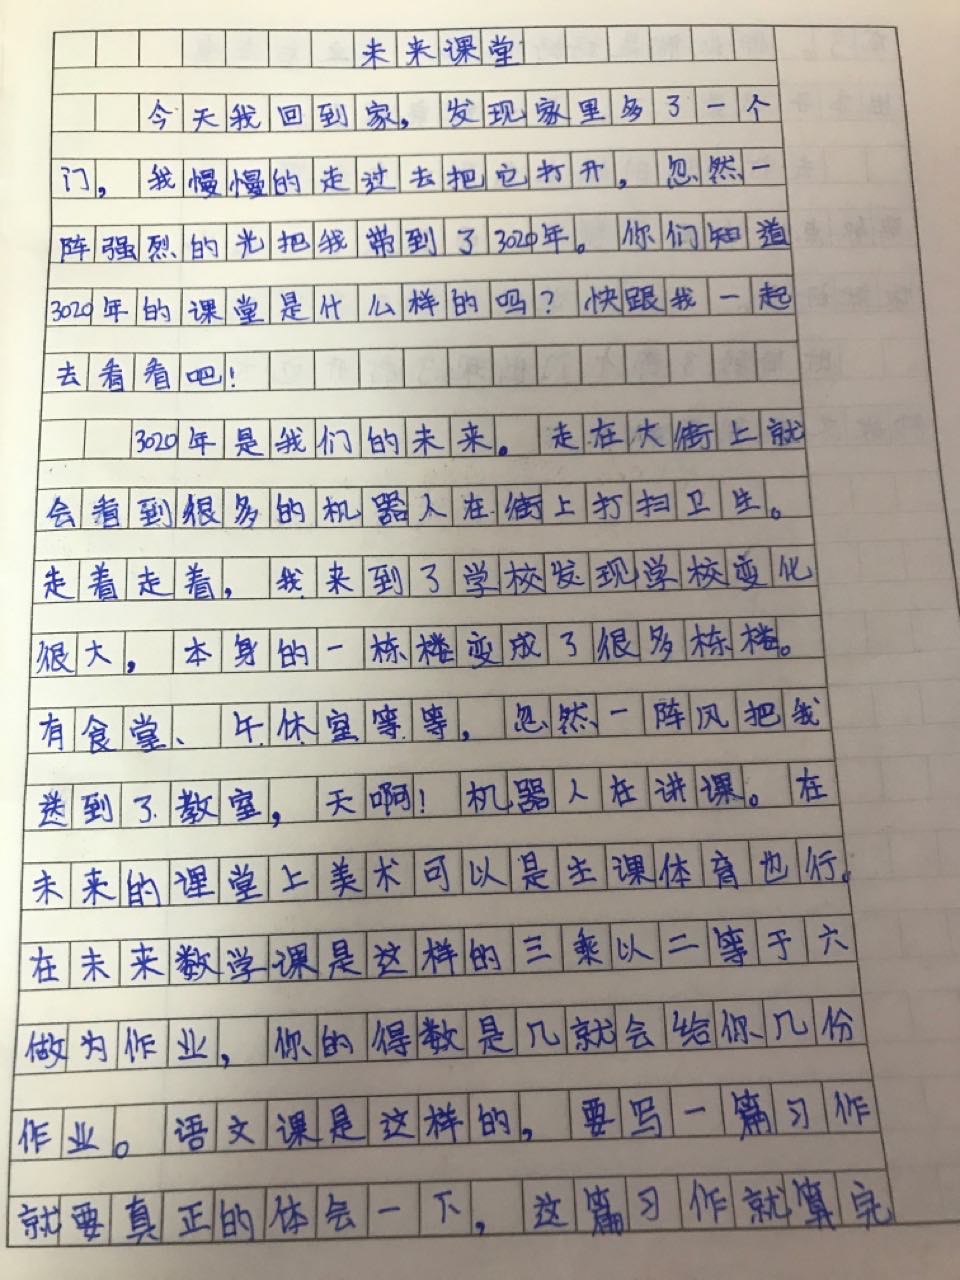 未来课堂
今天我回到家，发现家里多了一个
门，我慢慢的走过去把它打开，忽然一
阵强烈的光把我带到了3020年。你们知道
3020年的课堂是什么样的吗？快跟我一起
去看看吧！
3020年是我们的未来。走在大街上就
会看到很多的机器人在街上打扫卫生。
走着走着，我来到了学校发现学校变化
很大，本身的一栋楼变成了很多栋楼。
有食堂、午休室等等，忽然一阵风把我
送到了教室，天啊！机器人在讲课。在
未来的课堂上美术可以是主课体育也行。
在未来数学课是这样的三乘以二等于六
做为作业，你的得数是几就会给你几份
作业。语文课是这样的，要写一篇习作
就要真正的体会一下，这篇习作就算完